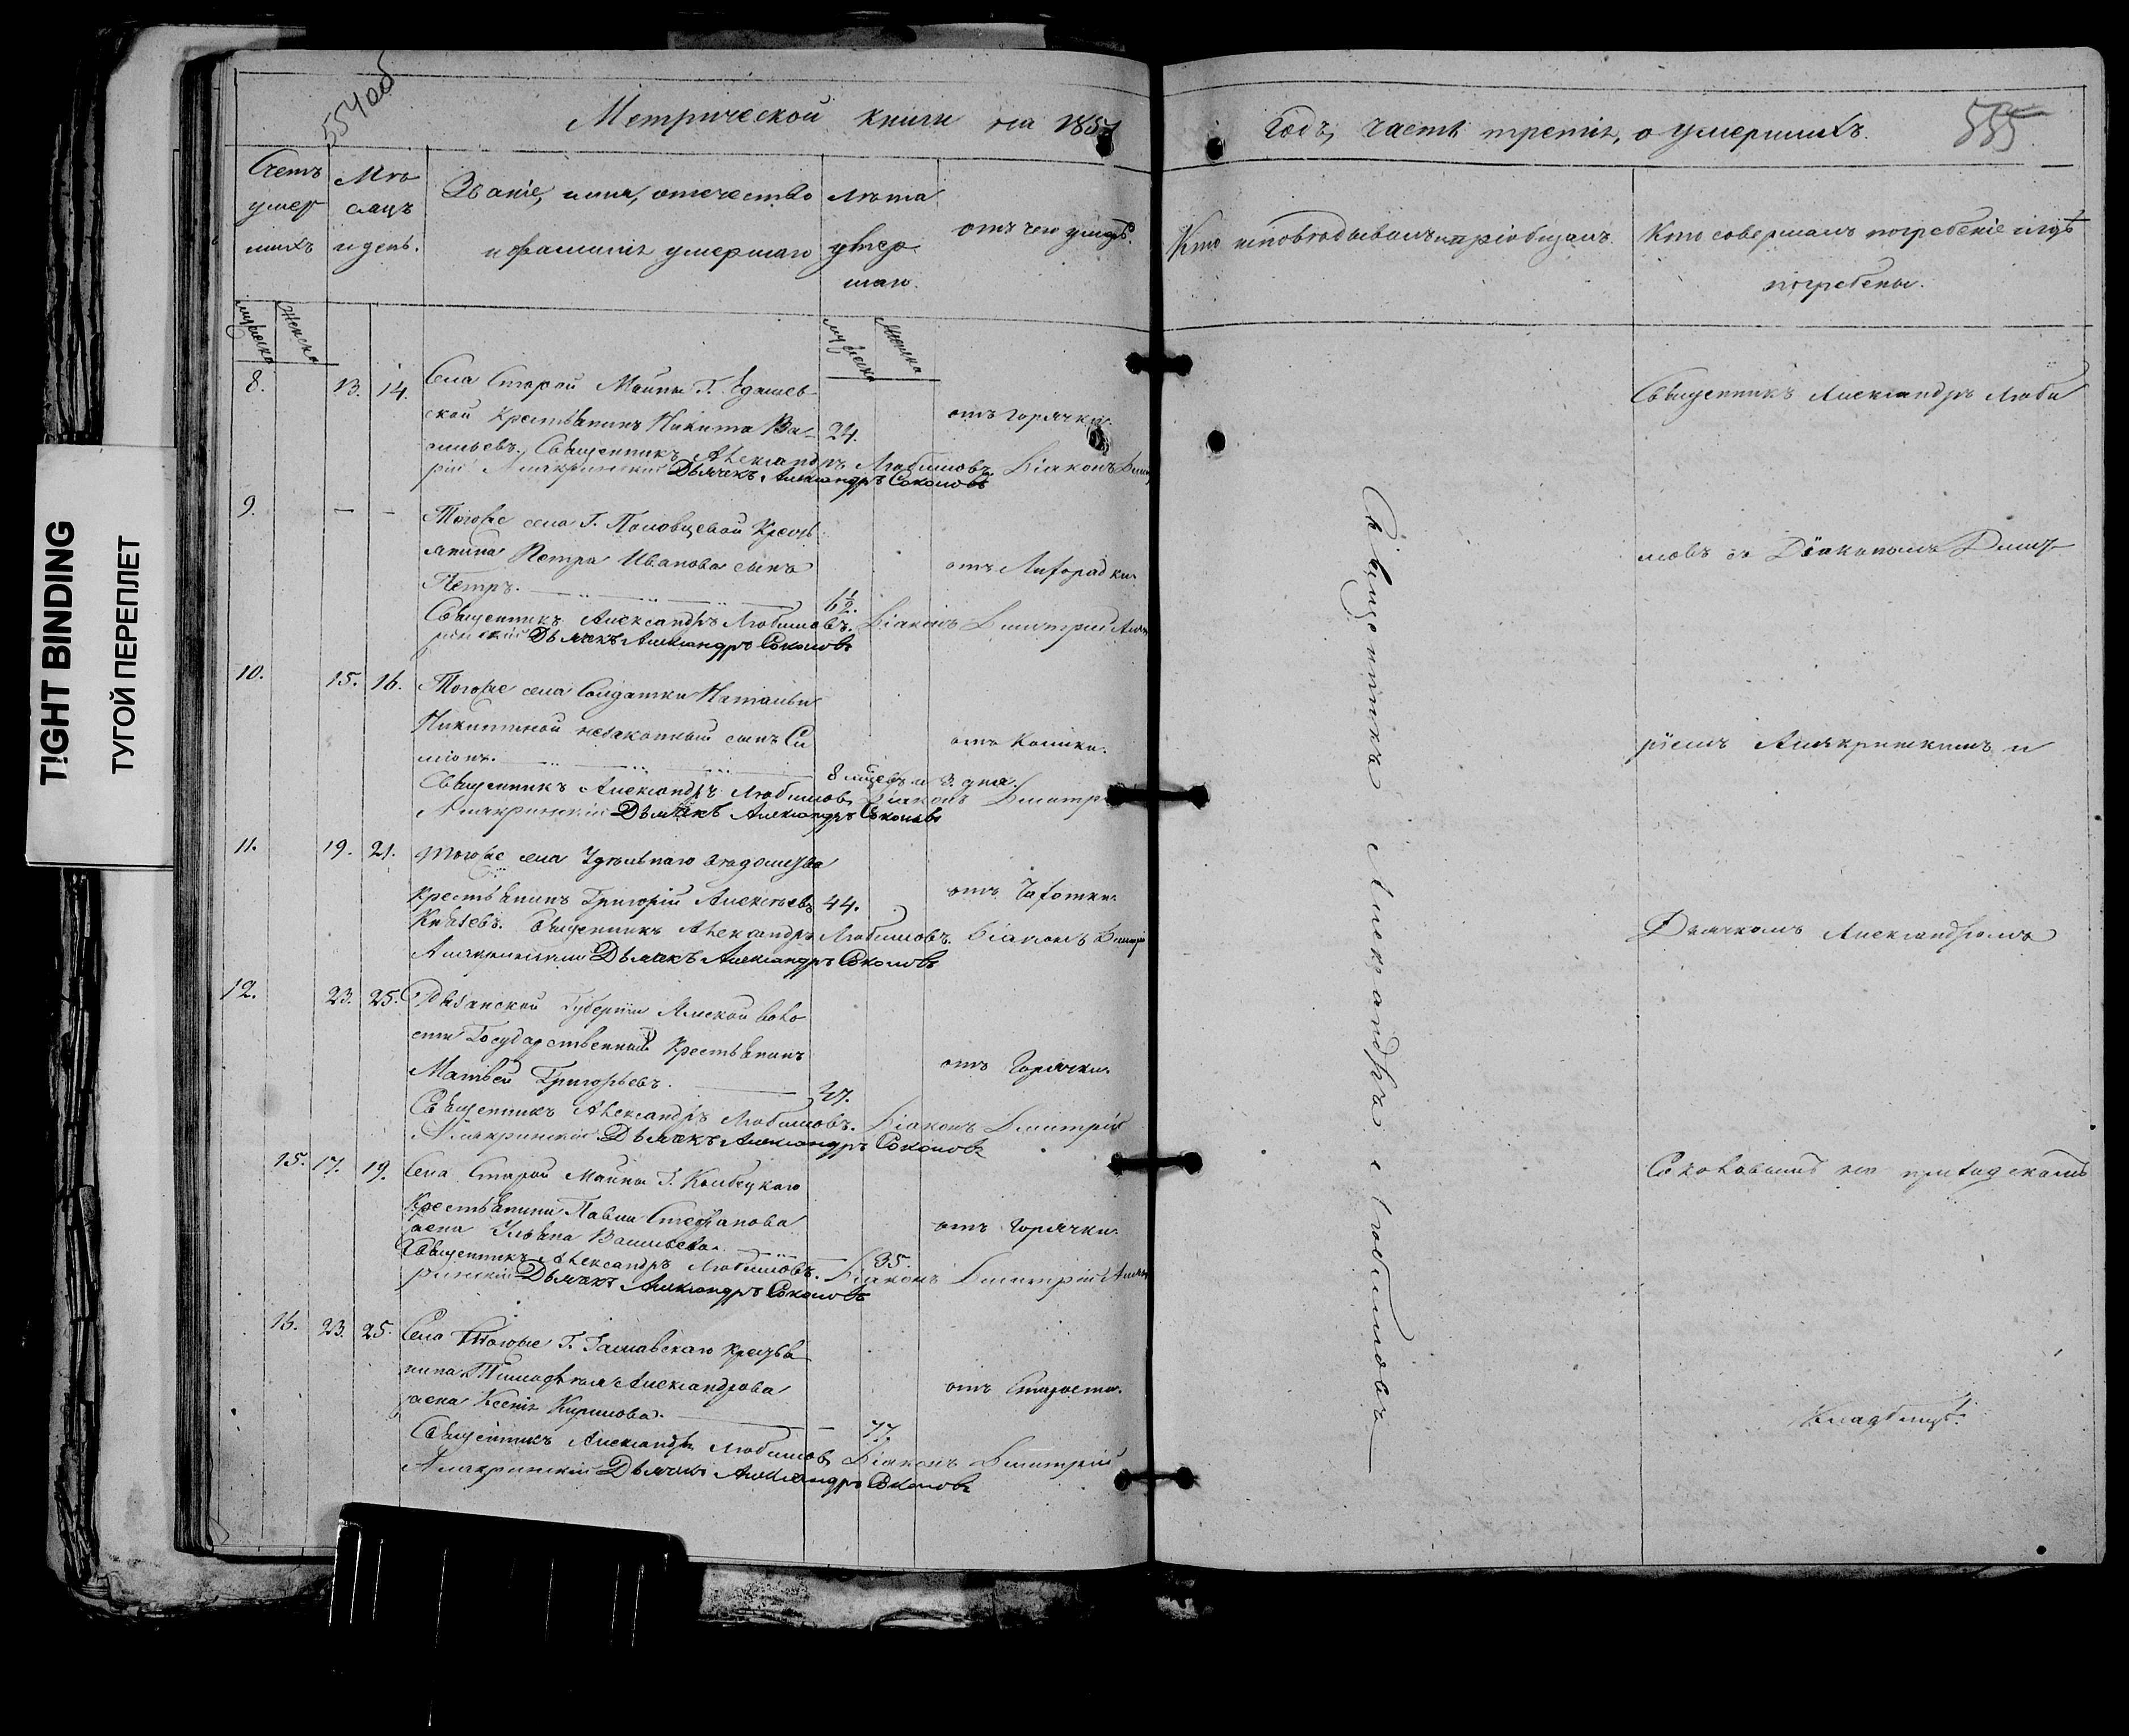 TIGHT BINDING
ТУГОЙ ПЕРЕПЛЕТ
554об
Метрической книги на 1857
Счетъ умер шихъ
Мѣ сяцъ и день.
Званіе, имя, отчество и фамилія умершаго
лѣта умер шаго.
отъ чего умеръ.
мужеска
женска
мужеска
женска
8. 13. 14. Села Старой Майны Г.
ской Крестьянинъ Никита Ва- 24. отъ горячки.
сильевъ. Священникъ Александръ Любимовъ. Діаконъ Дмит
рій Дьячекъ Александръ Соколовъ
9. — — Тогоже села Г. Половцевой Кресть
янина Петра Иванова сынъ отъ Лихорадки.
Петръ. 6½.
Священникъ Александръ Любимовъ. Діаконъ Дмитрій
Дьячекъ Александръ Соколовъ
10. 15. 16. Тогоже села Солдатки Натальи
Никитиной незаконный сынъ Си отъ
міонъ. 8 мѣсяцъ и 3 дня.
Священникъ Александръ Любимовъ Діаконъ Дмитр
Дьячекъ Александръ Соколовъ
11. 19. 21. Тогоже села Удѣльнаго вѣдомства
Крестьянинъ Григорій Алексѣевъ 44. отъ Чахотки.
Князевъ. Священникъ Александръ Любимовъ. Діаконъ
Дьячекъ Александръ Соколовъ
12. 23. 25. Рязанской Губерніи Ямской воло
сти Государственный Крестьянинъ
Матвей Григорьевъ. 47. отъ Горячки.
Священникъ Александръ Любимовъ. Діаконъ Дмитрій
Дьячекъ Александръ Соколовъ
15. 17. 19. Села Старой Майны Г. Колбецкаго
Крестьянина Павла Стефанова отъ Горячки.
жена Ульяна Васильева. 35.
Священникъ Александръ Любимовъ. Діаконъ Дмитрій
Дьячекъ Александръ Соколовъ
16. 23. 25. Села Тогоже Г. кресьтья
нина Тимофея Александрова отъ Старости.
жена Ксенія Кирилова. 77.
Священникъ Александръ Любимовъ Діаконъ Дмитрій
Дьячекъ Александръ Соколовъ
годъ, часть третія, о умершихъ.
555
Кто исповѣдывалъ и пріобщалъ.
Кто совершалъ погребеніе и гдѣ
погребены.
Священникъ Александръ Любимовъ
Священникъ Александръ Люби
мовъ съ Діакономъ Дмит-
ріемъ и
Дьячкомъ Александромъ
Соколовымъ на приходскомъ
Кладбищѣ.